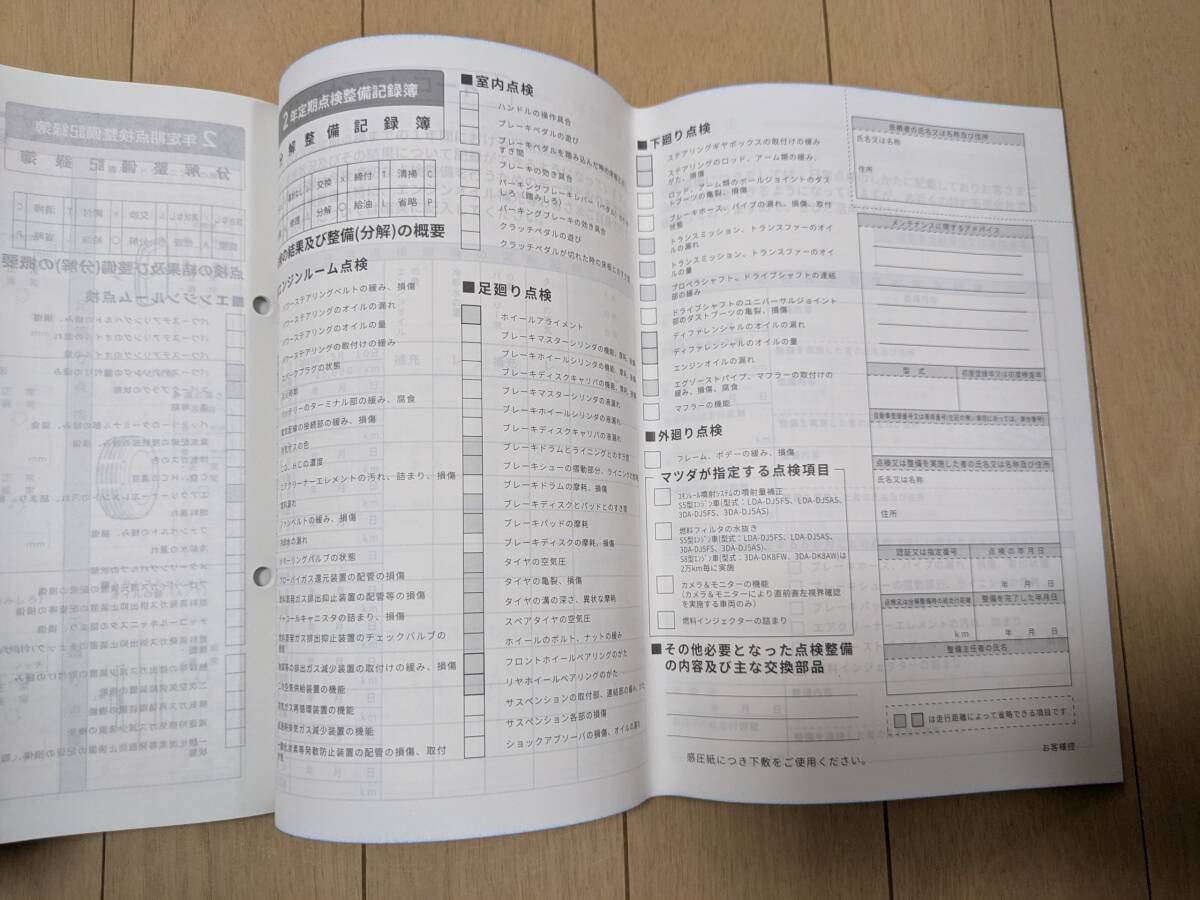 2年定期点検整備記録簿
分解整備記録簿
交換 X 締付 T 清掃 C
分解 ○ 給油 L 省略 P
の結果及び整備(分解)の概要
エンジンルーム点検
パワーステアリングベルトの緩み、損傷
パワーステアリングのオイルの漏れ
パワーステアリングのオイルの量
パワーステアリングの取付けの緩み
スパークプラグの状態
バッテリーのターミナル部の緩み、腐食
電気配線の接続部の緩み、損傷
排気ガスの色
CO、HCの濃度
エアクリーナーエレメントの汚れ、詰まり、損傷
燃料漏れ
ファンベルトの緩み、損傷
冷却水の漏れ
メターリングバルブの状態
ブローバイガス還元装置の配管の損傷
燃料蒸発ガス排出抑止装置の配管等の損傷
チャコールキャニスタの詰まり、損傷
燃料蒸発ガス排出抑止装置のチェックバルブの
機能
触媒等の排出ガス減少装置の取付けの緩み、損傷
二次空気供給装置の機能
排気ガス再循環装置の機能
減速時排気ガス減少装置の機能
一酸化炭素等発散防止装置の配管の損傷、取付
状態
■室内点検
ハンドルの操作具合
ブレーキペダルの遊び
ブレーキペダルを踏み込んだ時の床板との
すき間
ブレーキの効き具合
パーキングブレーキレバー(ペダル)の引き
しろ(踏みしろ)
パーキングブレーキの効き具合
クラッチペダルの遊び
クラッチペダルが切れた時の床板とのすき間
■足廻り点検
ホイールアライメント
ブレーキマスターシリンダの機能、摩耗、損傷
ブレーキホイールシリンダの機能、摩耗、損傷
ブレーキディスクキャリパの機能、摩耗、損傷
ブレーキマスターシリンダの液漏れ
ブレーキホイールシリンダの液漏れ
ブレーキディスクキャリパの液漏れ
ブレーキドラムとライニングとのすき間
ブレーキシューの摺動部分、ライニングの摩耗
ブレーキドラムの摩耗、損傷
ブレーキディスクとパッドとのすき間
ブレーキパッドの摩耗
ブレーキディスクの摩耗、損傷
タイヤの空気圧
タイヤの亀裂、損傷
タイヤの溝の深さ、異状な摩耗
スペアタイヤの空気圧
ホイールのボルト、ナットの緩み
フロントホイールベアリングのがた
リヤホイールベアリングのがた
サスペンションの取付部、連結部の緩み、がた
サスペンション各部の損傷
ショックアブソーバの損傷、オイルの漏れ
■下廻り点検
ステアリングギヤボックスの取付けの緩み
ステアリングのロッド、アーム類の緩み、
がた、損傷
ロッド、アーム類のボールジョイントのダス
トブーツの亀裂、損傷
ブレーキホース、パイプの漏れ、損傷、取付
状態
トランスミッション、トランスファーのオイ
ルの漏れ
トランスミッション、トランスファーのオイ
ルの量
プロペラシャフト、ドライブシャフトの連結
部の緩み
ドライブシャフトのユニバーサルジョイント
部のダストブーツの亀裂、損傷
ディファレンシャルのオイルの漏れ
ディファレンシャルのオイルの量
エンジンオイルの漏れ
エグゾーストパイプ、マフラーの取付けの
緩み、損傷、腐食
マフラーの機能
■外廻り点検
フレーム、ボデーの緩み、損傷
マツダが指定する点検項目
コモンレール噴射システムの噴射量補正
S5型エンジン車(型式:LDA-DJ5FS、LDA-DJ5AS、
3DA-DJ5FS、3DA-DJ5AS)
燃料フィルタの水抜き
S5型エンジン車(型式:LDA-DJ5FS、LDA-DJ5AS、
3DA-DJ5FS、3DA-DJ5AS)、
S8型エンジン車(型式:3DA-DK8FW、3DA-DK8AW)は
2万km毎に実施
カメラ&モニターの機能
(カメラ&モニターにより直前直左視界確認
を実施する車両のみ)
燃料インジェクターの詰まり
■その他必要となった点検整備
の内容及び主な交換部品
感圧紙につき下敷をご使用ください。
依頼者の氏名又は名称及び住所
氏名又は名称
住所
メンテナンスに関するアドバイス
型式 初度登録年又は初度検査年
点検又は整備を実施した者の氏名又は名称及び住所
氏名又は名称
住所
認証又は指定番号 点検の年月日
年 月 日
点検又は分解整備時の総走行距離 整備を完了した年月日
km 年 月 日
整備主任者の氏名
は走行距離によって省略できる項目です。
お客様控